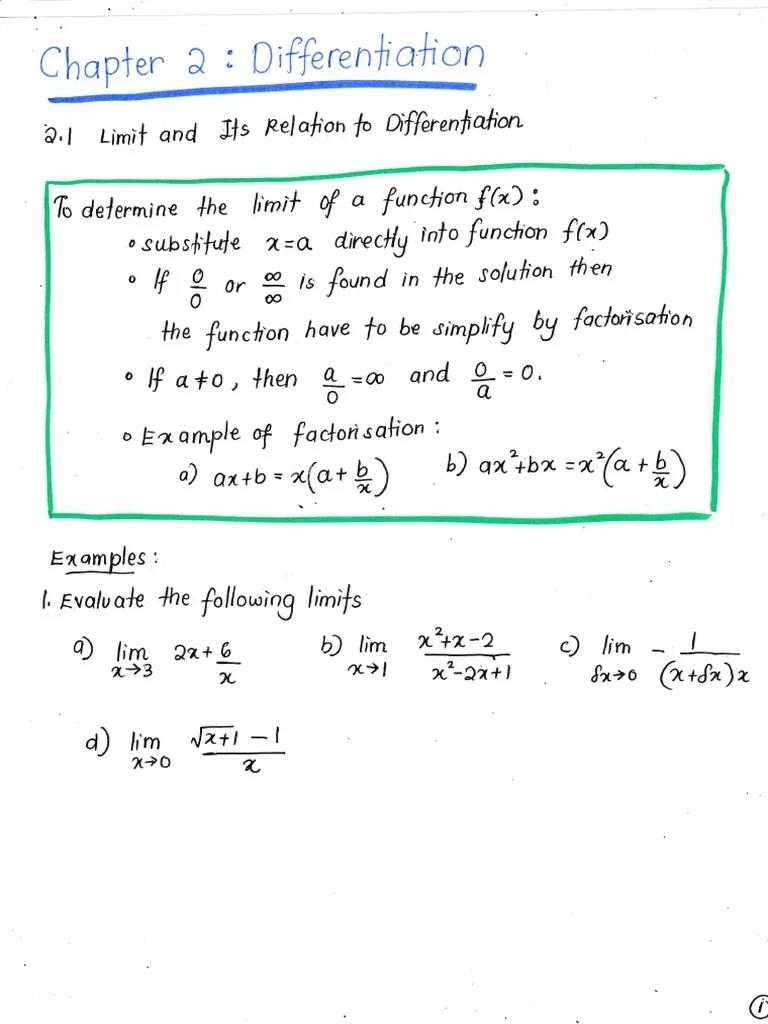 Chapter 2 : Differentiation
2.1 Limit and Its Relation to Differentiation
To determine the limit of a function f(x) :
• substitute x=a directly into function f(x)
• If 0/0 or ∞/∞ is found in the solution then
the function have to be simplify by factorisation
• If a≠0, then a/0 = ∞ and 0/a = 0.
• Example of factorisation :
a) ax+b = x(a+b/x) b) ax²+bx = x²(a+b/x)
Examples :
1. Evaluate the following limits
a) lim x→3 2x+6/x b) lim x→1 (x²+x-2)/(x²-2x+1) c) lim δx→0 -1/((x+δx)x)
d) lim x→0 (√(x+1) -1)/x
1